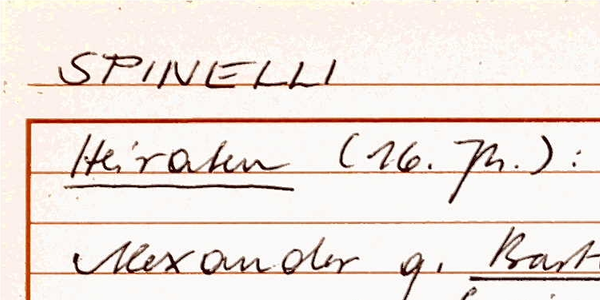 SPINELLI
Heiraten (16. Jh.):
Alexander q. Bart